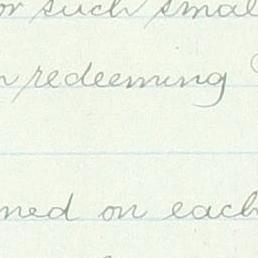 or such small
redeeming
ned on each